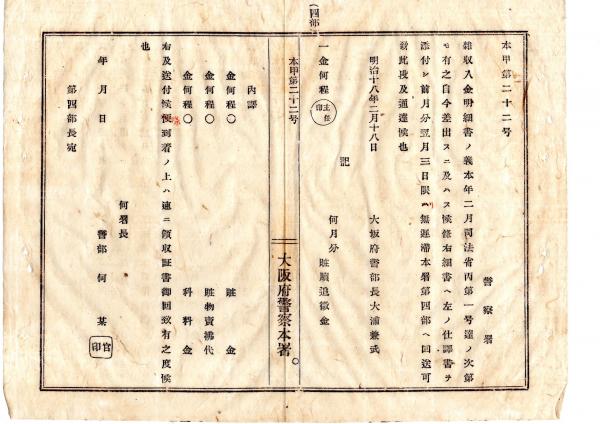 (四部)
本甲第二十二号
警察署
雑収入金明細書ノ義本年二月司法省丙第一号達ノ次第
モ有之自今差出スニ及ハス候條右細書ヘ左ノ仕譯書ヲ
添付シ前月分翌月三日限ハ無遅滞本署第四部ヘ回送可
致此段及通達候也
明治十八年二月十八日
大坂府警部長大浦兼武
記
一金何程 主任印
何月分 贓贖追徴金
本甲第二十二号
大阪府警察本署
内譯
金何程〇 贓金
金何程〇 贓物賣拂代
金何程〇 科料金
右及送付候便到着ノ上ハ速ニ領収証書御回致有之度候
也
年月日
何署長
警部何某 官印
第四部長宛